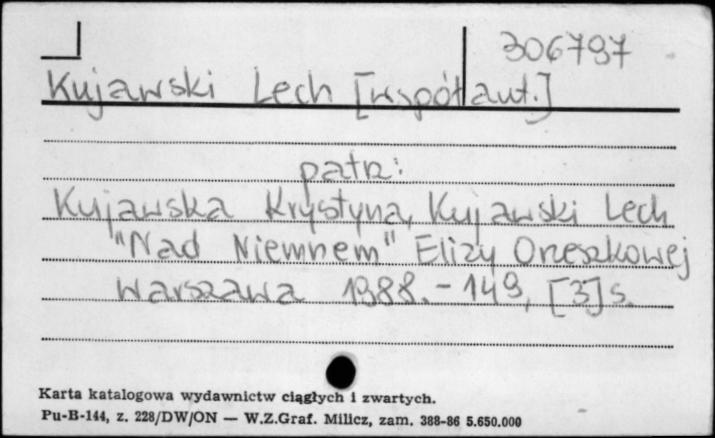 306797
Kujawski Lech [współaut.]
patrz:
Kujawska Krystyna, Kujawski Lech
"Nad Niemnem" Elizy Orzeszkowej
Warszawa 1988. - 149, [3] s.
Karta katalogowa wydawnictw ciągłych i zwartych.
Pu-B-144, z. 228/DW/ON — W.Z.Graf. Milicz, zam. 388-86 5.650.000